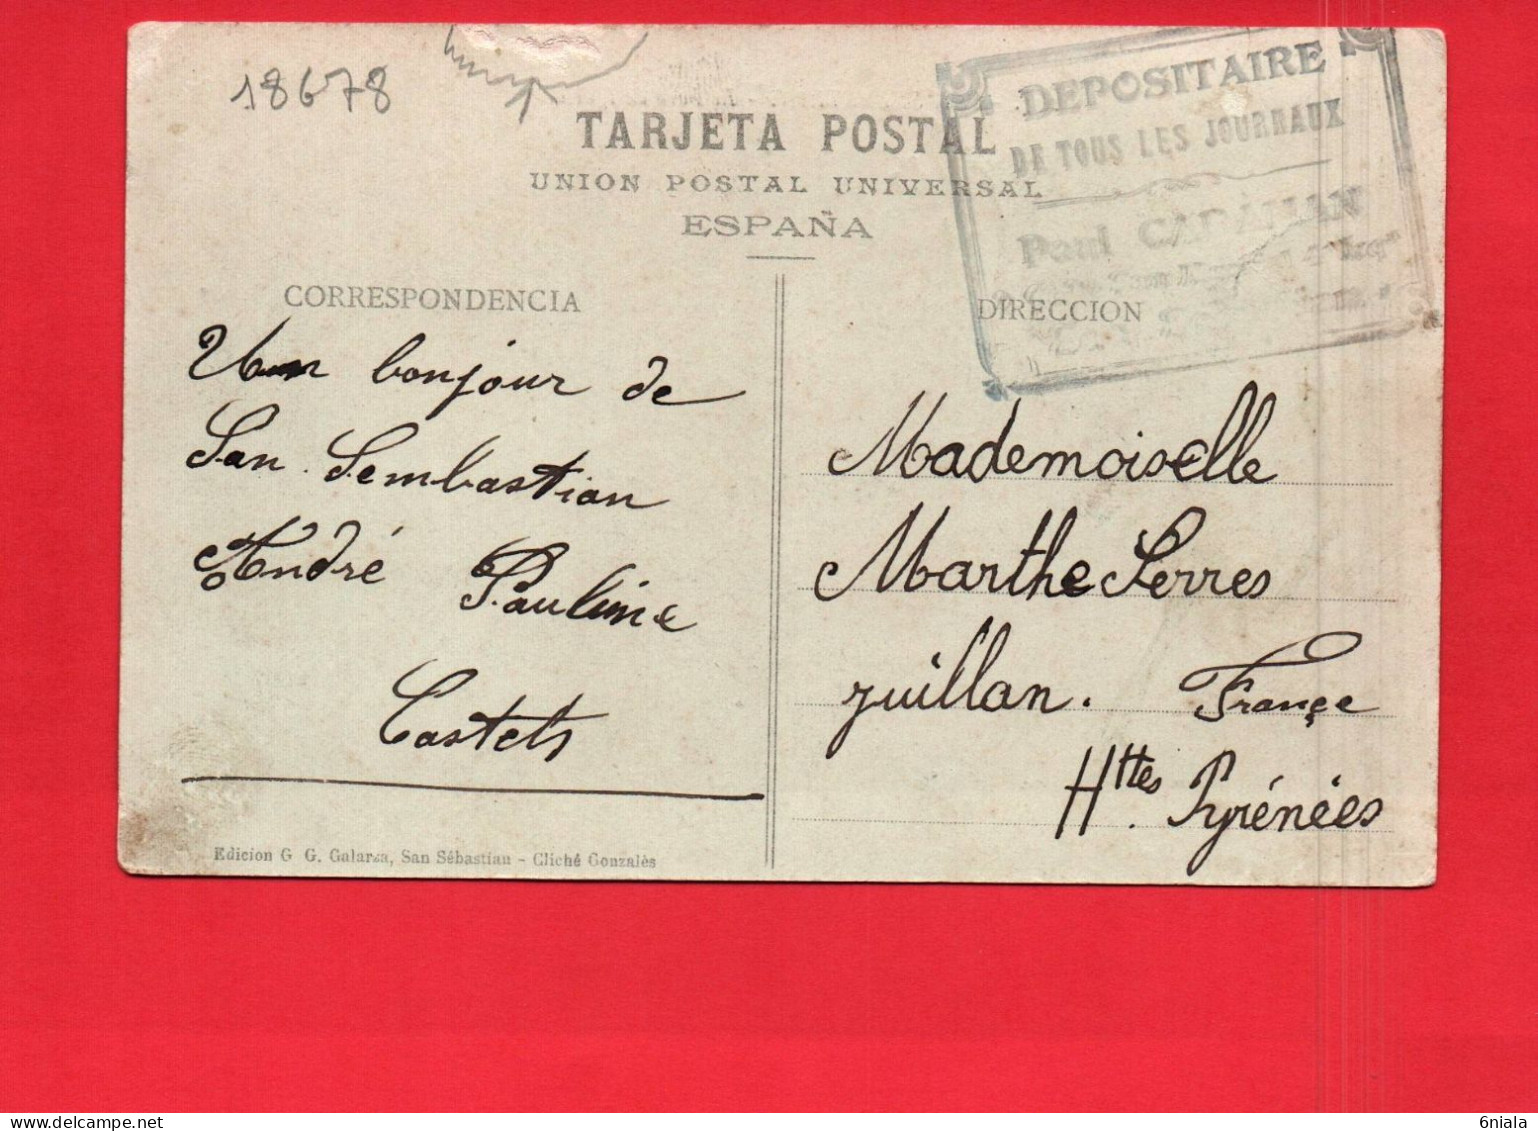 18678
TARJETA POSTAL
UNION POSTAL UNIVERSAL
ESPAÑA
DEPOSITAIRE
DE TOUS LES JOURNAUX
Paul
CORRESPONDENCIA
Un bonjour de
San Sembastian
André Pauline
Castets
DIRECCION
Mademoiselle
Marthe Serres
juillan. France
Httes Pyrénées
Edicion G G. Galarza, San Sébastian - Cliché Gonzalès
6niala